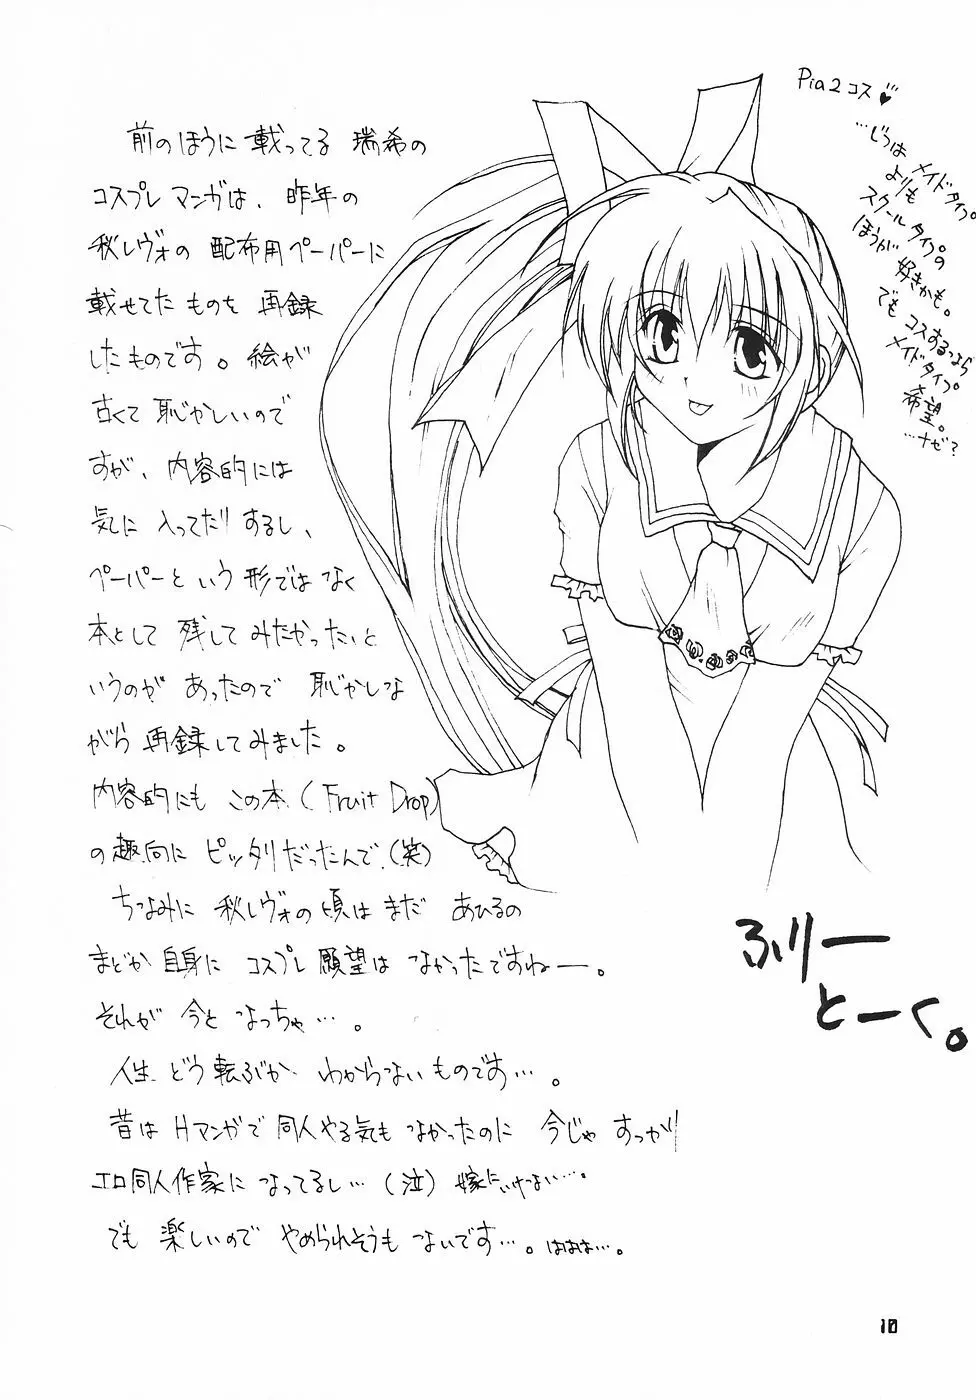 前のほうに載ってる瑞希の
コスプレマンガは、昨年の
秋レヴォの配布用ペーパーに
載せてたものを再録
したものです。絵が
古くて恥かしいので
すが、内容的には
気に入ってたりするし、
ペーパーという形ではなく
本として残してみたかったと
いうのがあったので恥かしな
がら再録してみました。
内容的にもこの本(Fruit Drop)
の趣向にピッタリだったんで(笑)
ちなみに秋レヴォの頃はまだあひるの
まどか自身にコスプレ願望はなかったですねー。
それが今となっちゃ…。
人生どう転ぶかわからないものです…。
昔はHマンガで同人やる気もなかったのに今じゃすっかり
エロ同人作家になってるし…(泣)嫁にいけない…。
でも楽しいのでやめられそうもないです…。はぁぁ…。
Pia2コス♥
…じつは
メイドタイプ
よりも
スクールタイプの
ほうが好きかも。
でもコスするなら
メイドタイプ
希望。
…ナゼ?
ふりー
とーく。
10